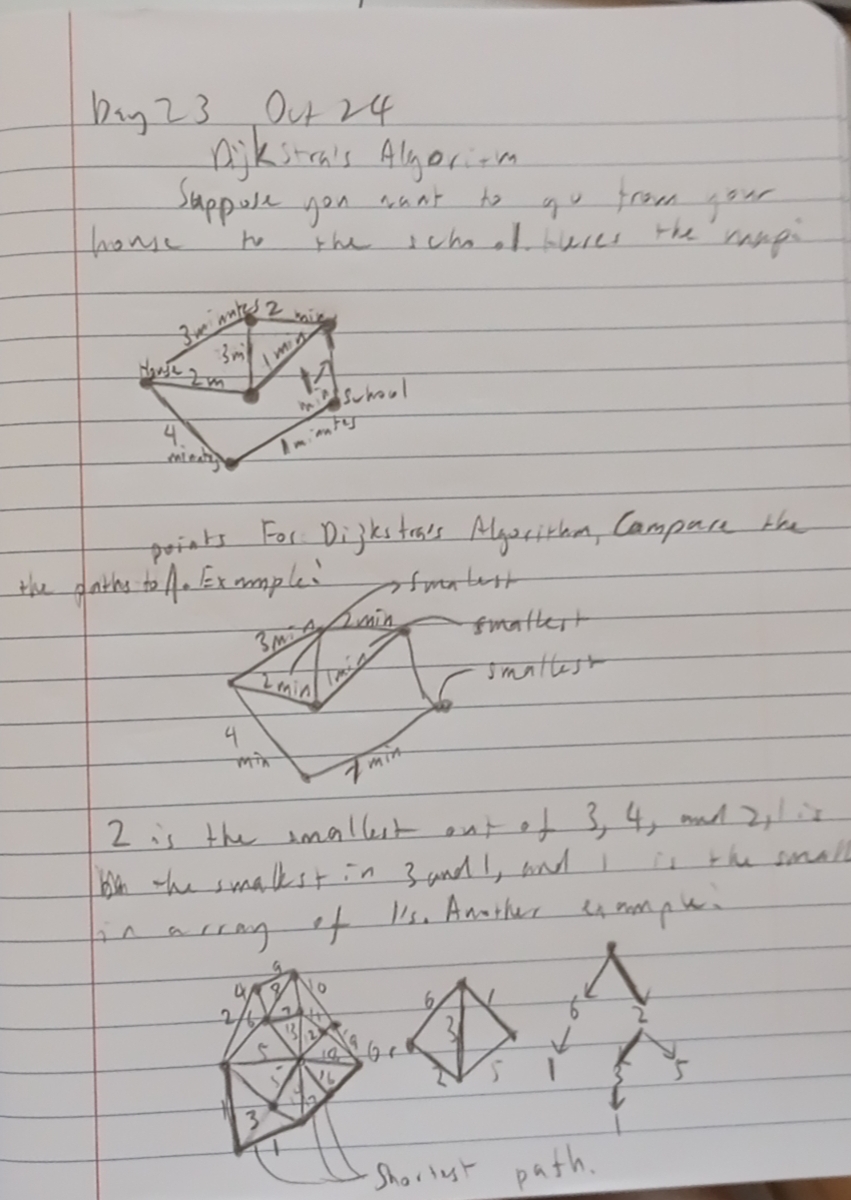 Day 23 Oct 24
Dijkstra's Algoritm
Suppose you want to go from your
house to the school. Heres the map:
3 minutes 2 min
3m 1 min
House 2 m
1 min School
4 minutes 1 minutes
points For Dijkstra's Algorithm, Compare the
the paths to A. Example:
smallest
3 min 2 min smallest
2 min 1 min smallest
4 min 1 min
2 is the smallest out of 3, 4, and 2, 1 is
the smallest in 3 and 1, and 1 is the small
in array of 1's. Another example:
9
4 8 10
2 6 7 11
13 12 9
5 18
5 16
1 3
1
6 1
3
2 5
6 2
1 3 5
1
Shortest path.